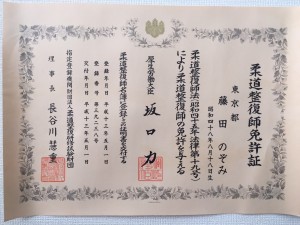 柔道整復師免許証
東京都
藤田のぞみ
昭和四十八年八月十八日生
柔道整復師法(昭和四十五年法律第十九号)
により柔道整復師の免許を与える
厚生労働大臣 坂口力
柔道整復師名簿に登録したことを証明する
登録年月日 平成十三年五月一日
登録番号
交付年月日 平成十三年五月一日
指定登録機関 財団法人柔道整復研修試験財団
理事長 長谷川慧重